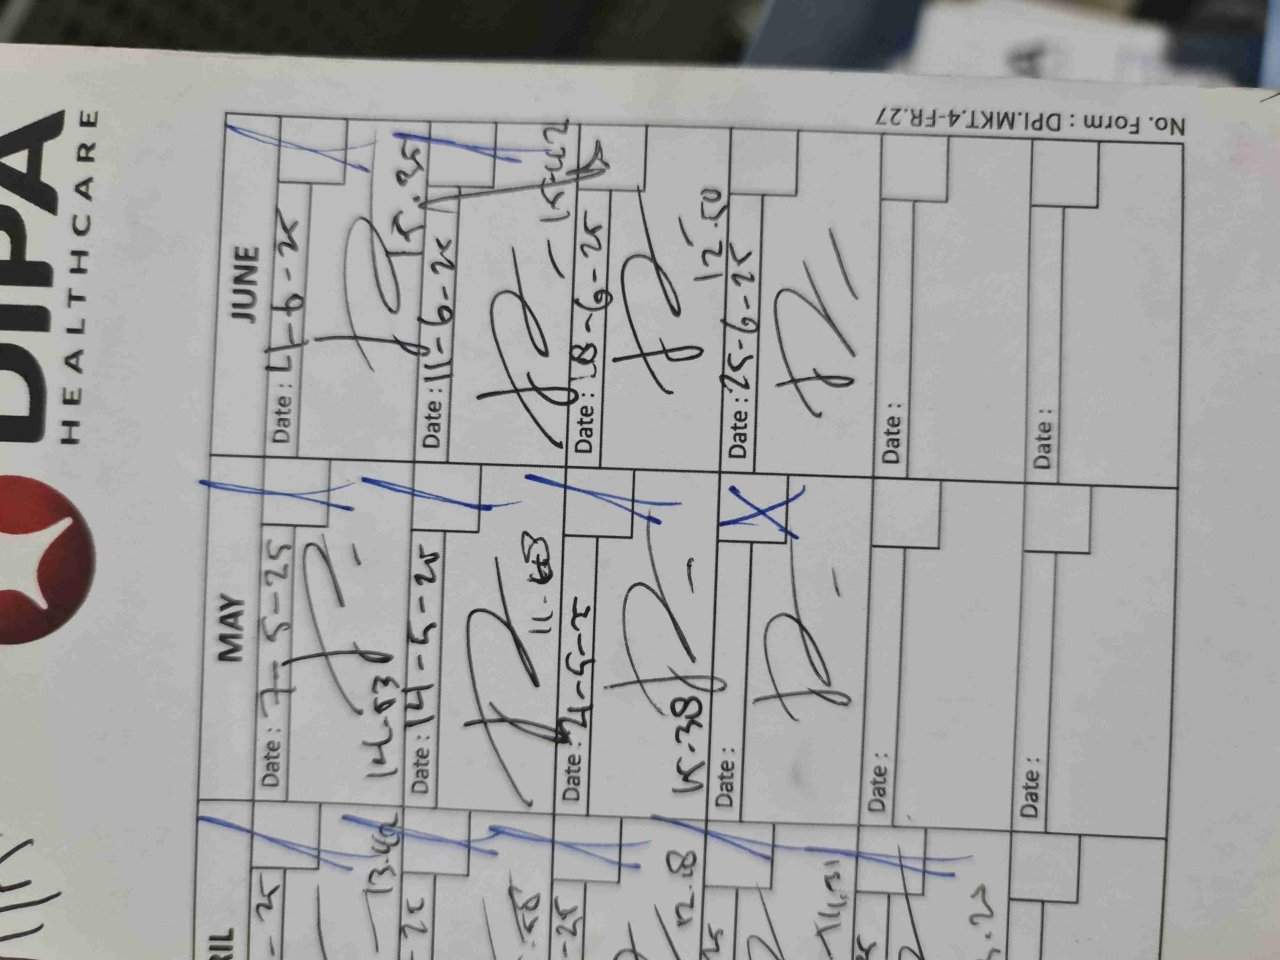 DIPA
HEALTHCARE
No. Form : DPI.MKT.4-FR.27
RIL
- 25
13.42
- 25
- 25
12.18
14.31
MAY
Date : 7-5-25
14-53
Date : 14-5-25
Date : 21-5-2
15-38
Date :
Date :
Date :
JUNE
Date : 4-6-25
15.35
Date : 11-6-25
15-42
Date : 18-6-25
12.50
Date : 25-6-25
Date :
Date :